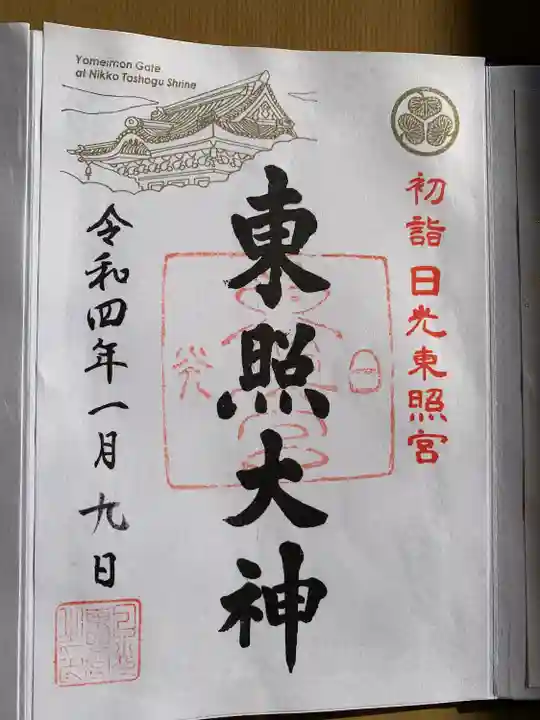 Yomeimon Gate
at Nikko Toshogu Shrine
初詣 日光東照宮
東照大神
令和四年一月九日